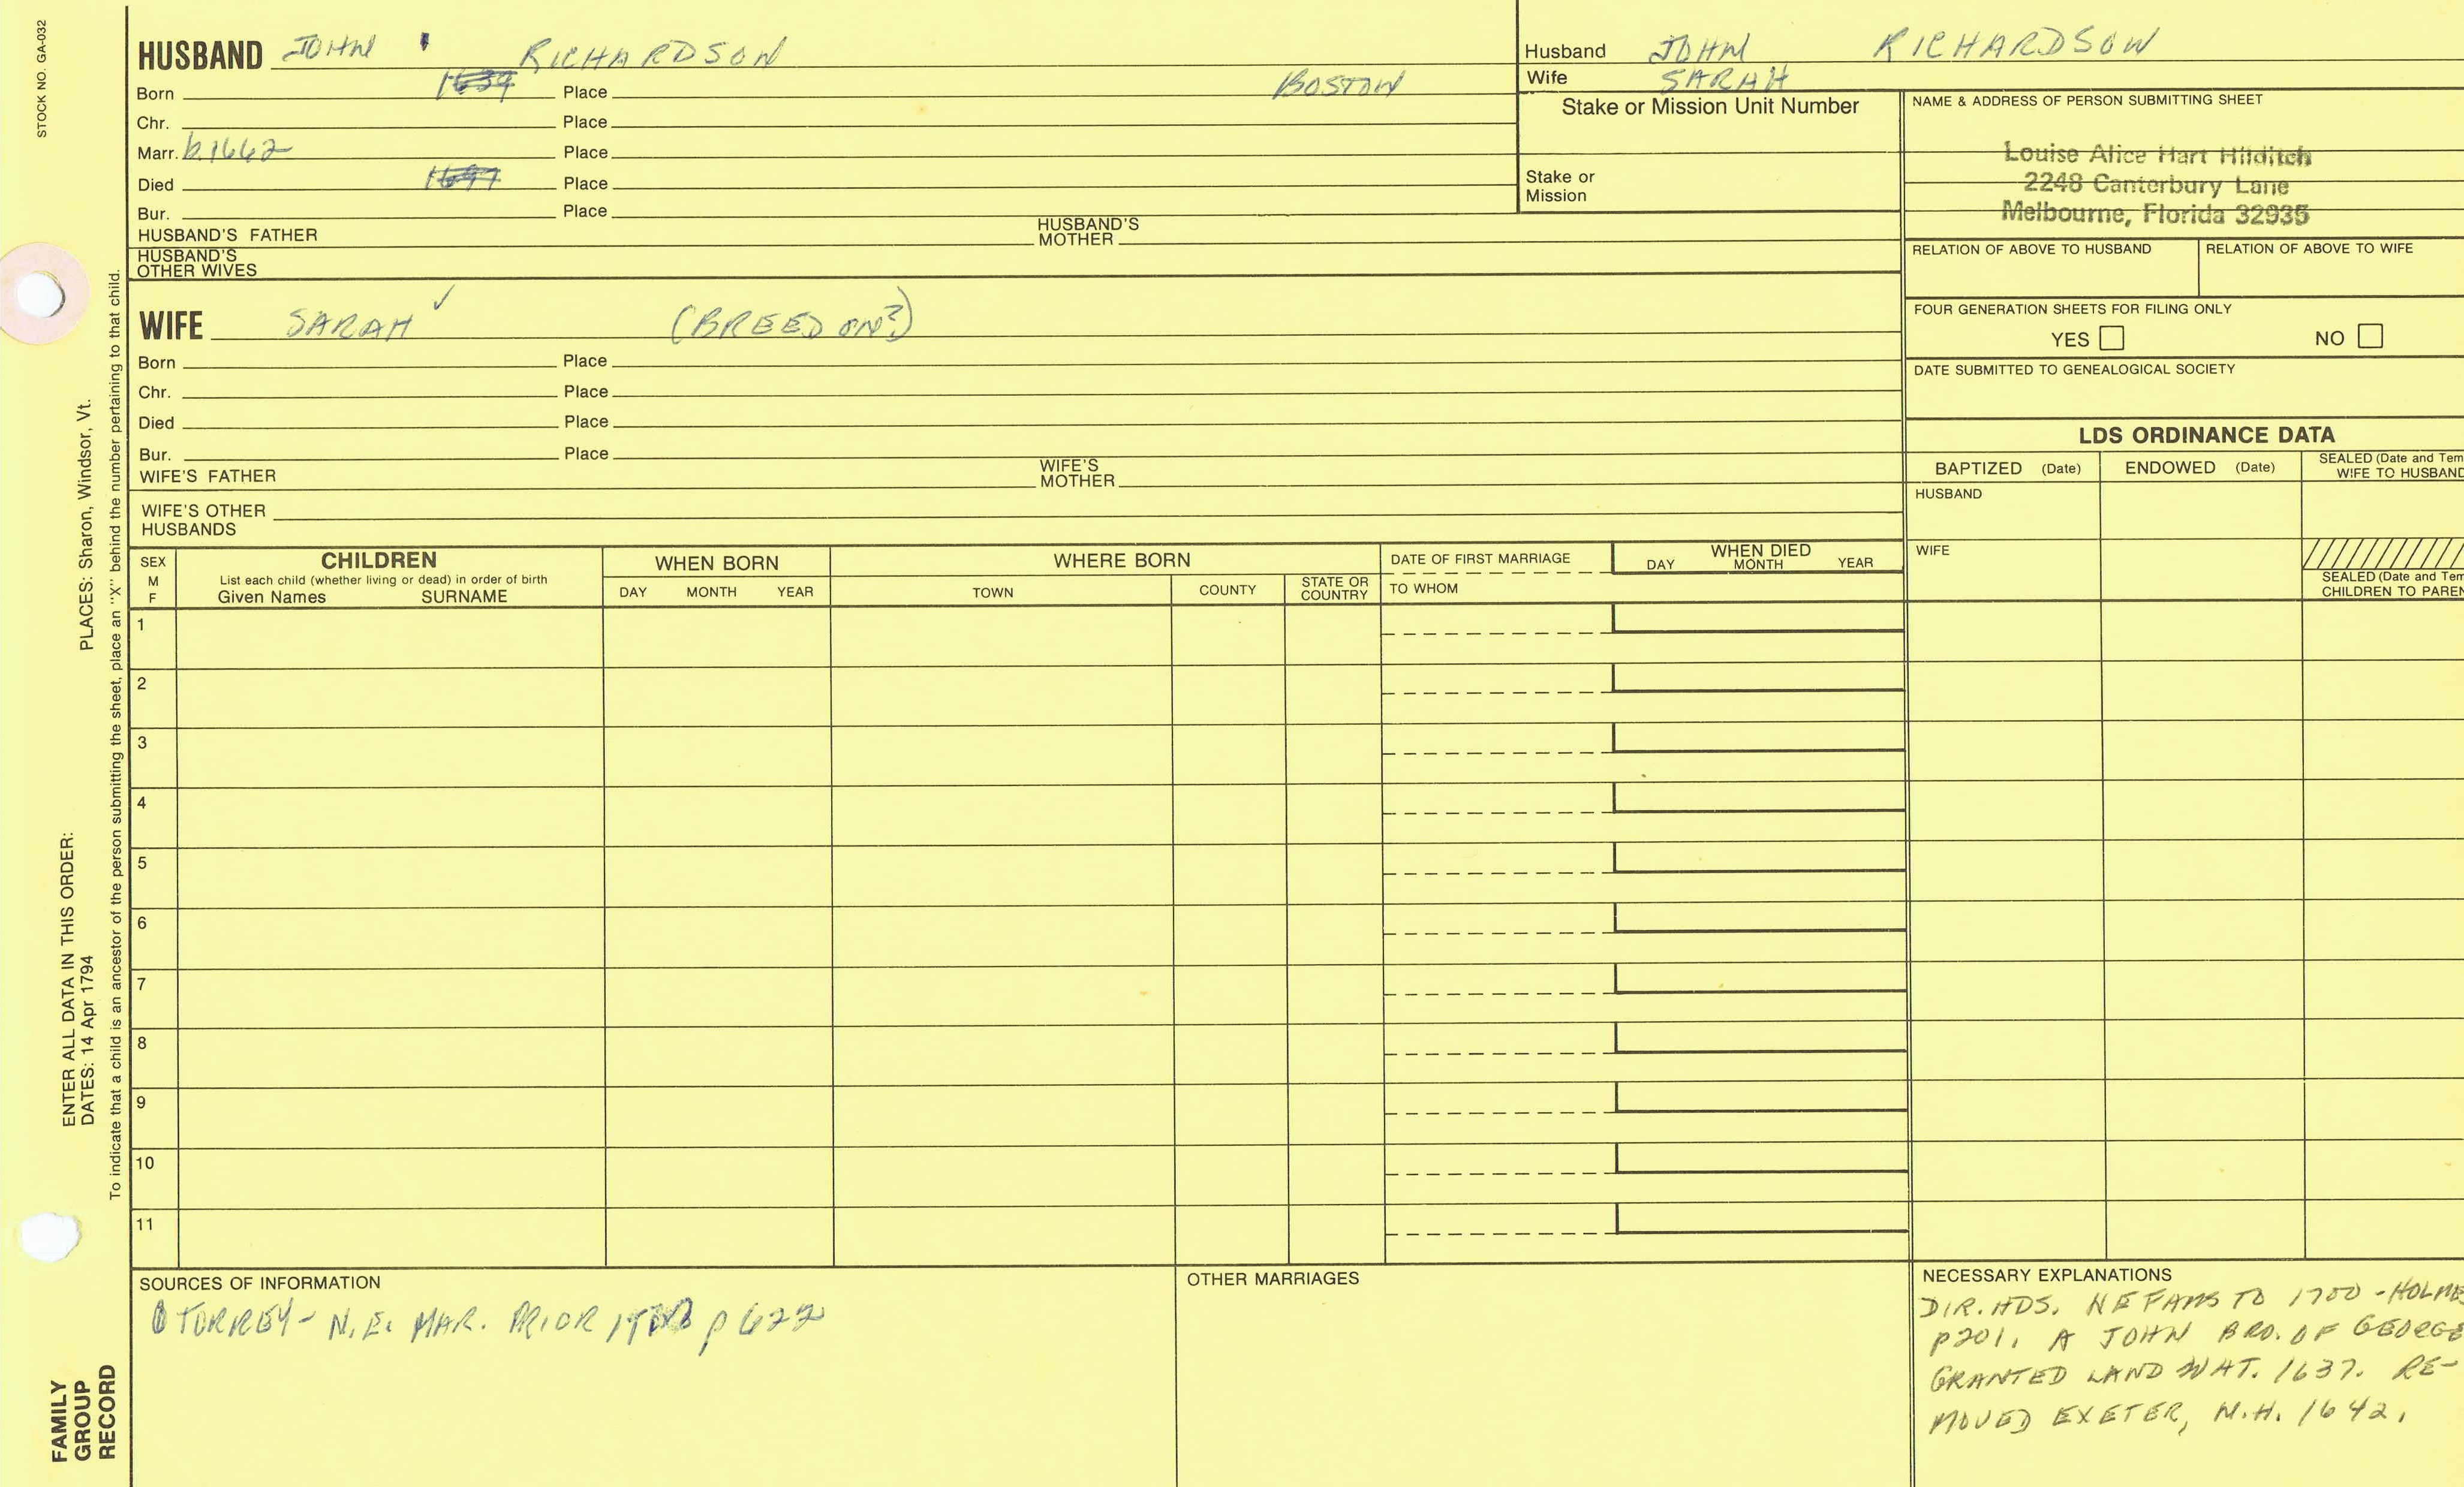 STOCK NO. GA-032
HUSBAND JOHN RICHARDSON
Born 1639 Place BOSTON
Chr. Place
Marr. b.1662 Place
Died Place
Bur. Place
HUSBAND'S FATHER HUSBAND'S MOTHER
HUSBAND'S OTHER WIVES
Husband JOHN RICHARDSON
Wife SARAH
Stake or Mission Unit Number
Stake or
Mission
NAME & ADDRESS OF PERSON SUBMITTING SHEET
Louise Alice Hart Hilditch
2248 Canterbury Lane
Melbourne, Florida 32935
RELATION OF ABOVE TO HUSBAND RELATION OF ABOVE TO WIFE
FOUR GENERATION SHEETS FOR FILING ONLY
YES NO
DATE SUBMITTED TO GENEALOGICAL SOCIETY
WIFE SARAH ✓ (BREEDON?)
Born Place
Chr. Place
Died Place
Bur. Place
WIFE'S FATHER WIFE'S MOTHER
WIFE'S OTHER
HUSBANDS
LDS ORDINANCE DATA
BAPTIZED (Date) ENDOWED (Date) SEALED (Date and Tem
WIFE TO HUSBAND
HUSBAND
WIFE
SEALED (Date and Tem
CHILDREN TO PAREN
SEX
M
F
CHILDREN
List each child (whether living or dead) in order of birth
Given Names SURNAME
WHEN BORN
DAY MONTH YEAR
WHERE BORN
TOWN COUNTY STATE OR COUNTRY
DATE OF FIRST MARRIAGE
TO WHOM
WHEN DIED
DAY MONTH YEAR
1
2
3
4
5
6
7
8
9
10
11
SOURCES OF INFORMATION
TORREY - N.E. MAR. PRIOR 1700 p 622
OTHER MARRIAGES
NECESSARY EXPLANATIONS
DIR. HDS. NE FAMS TO 1700 - HOLME
p201. A JOHN BRO. OF GEORGE
GRANTED LAND WAT. 1637. RE-
MOVED EXETER, N.H. 1642.
PLACES: Sharon, Windsor, Vt.
ENTER ALL DATA IN THIS ORDER:
DATES: 14 Apr 1794
To indicate that a child is an ancestor of the person submitting the sheet, place an "X" behind the number pertaining to that child.
FAMILY
GROUP
RECORD